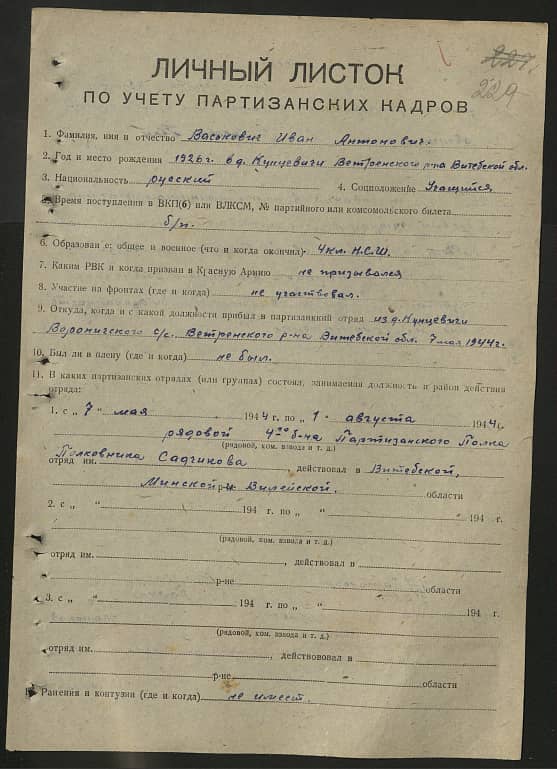 227.
229
ЛИЧНЫЙ ЛИСТОК
ПО УЧЕТУ ПАРТИЗАНСКИХ КАДРОВ
1. Фамилия, имя и отчество Васькович Иван Антонович.
2. Год и место рождения 1926 г. в д. Кунцевичи Ветренского р-на Витебской обл.
3. Национальность русский 4. Соцположение Учащийся
5. Время поступления в ВКП(б) или ВЛКСМ, № партийного или комсомольского билета
б/п.
6. Образован е: общее и военное (что и когда окончил) 4 кл. Н.С.Ш.
7. Каким РВК и когда призван в Красную Армию не призывался
8. Участие на фронтах (где и когда) не участвовал.
9. Откуда, когда и с какой должности прибыл в партизанский отряд из д. Кунцевичи
Вороничского с/с. Ветренского р-на Витебской обл. 7 мая 1944 г.
10. Был ли в плену (где и когда) не был.
11. В каких партизанских отрядах (или группах) состоял, занимаемая должность и район действия
отряда:
1. с „ 7 " мая 1944 г. по „ 1 " августа 1944 г.
рядовой 4го б-на Партизанского Полка
(рядовой, ком. взвода и т. д.)
отряд им. Полковника Садчикова действовал в Витебской,
Минской и Вилейской. области
2. с „ " 194 г. по „ " 194 г.
(рядовой, ком. взвода и т. д.)
отряд им. , действовал в
р-не области
3. с „ " 194 г. по „ " 194 г.
(рядовой, ком. взвода и т. д.)
отряд им. , действововал в
р-не области
Ранения и контузии (где и когда) не имеет.